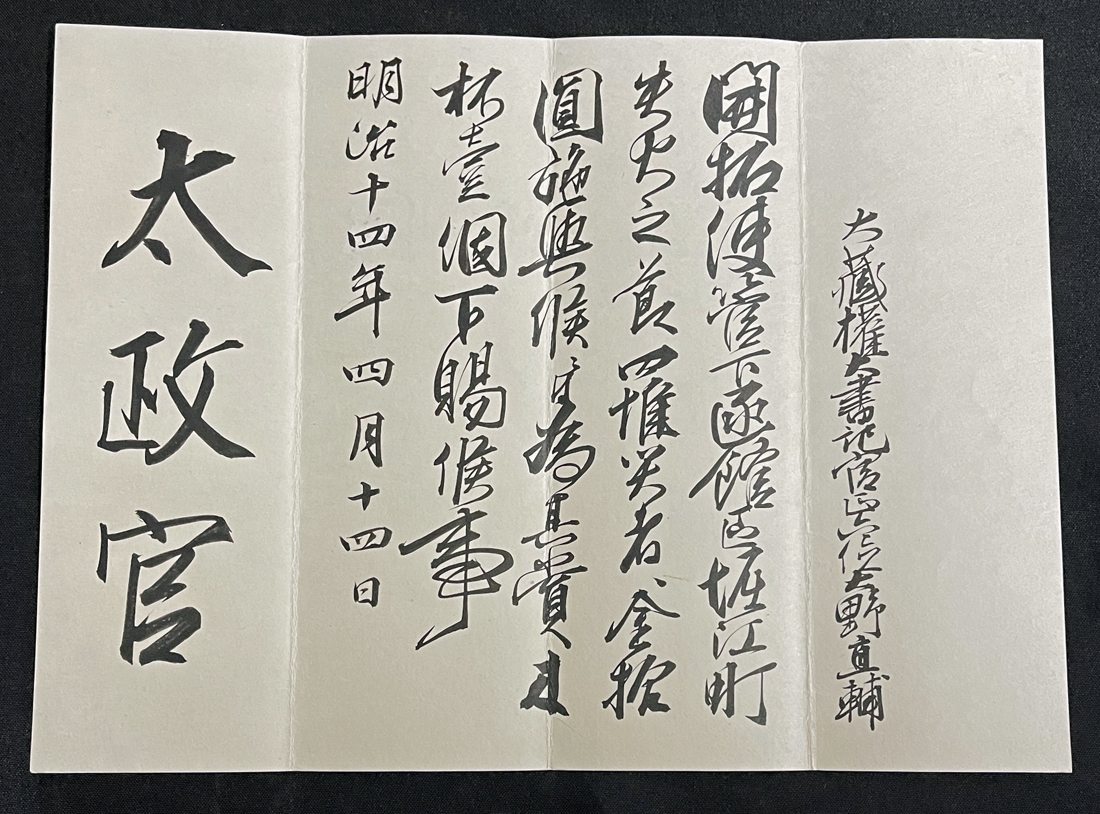 大藏權大書記官正六位大野直輔
開拓使管下函館區堀江町
失火之節罹災者へ金拾
圓施與候ニ付為其賞木
杯壹個下賜候事
明治十四年四月十四日
太政官